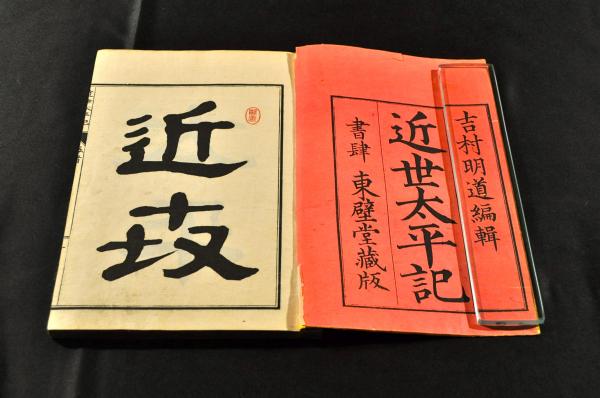 吉村明道編輯
近世太平記
書肆 東壁堂藏版
近